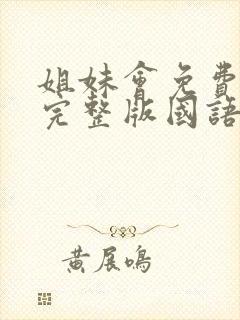 姐妹會免費
完整版國語
黃展鳴